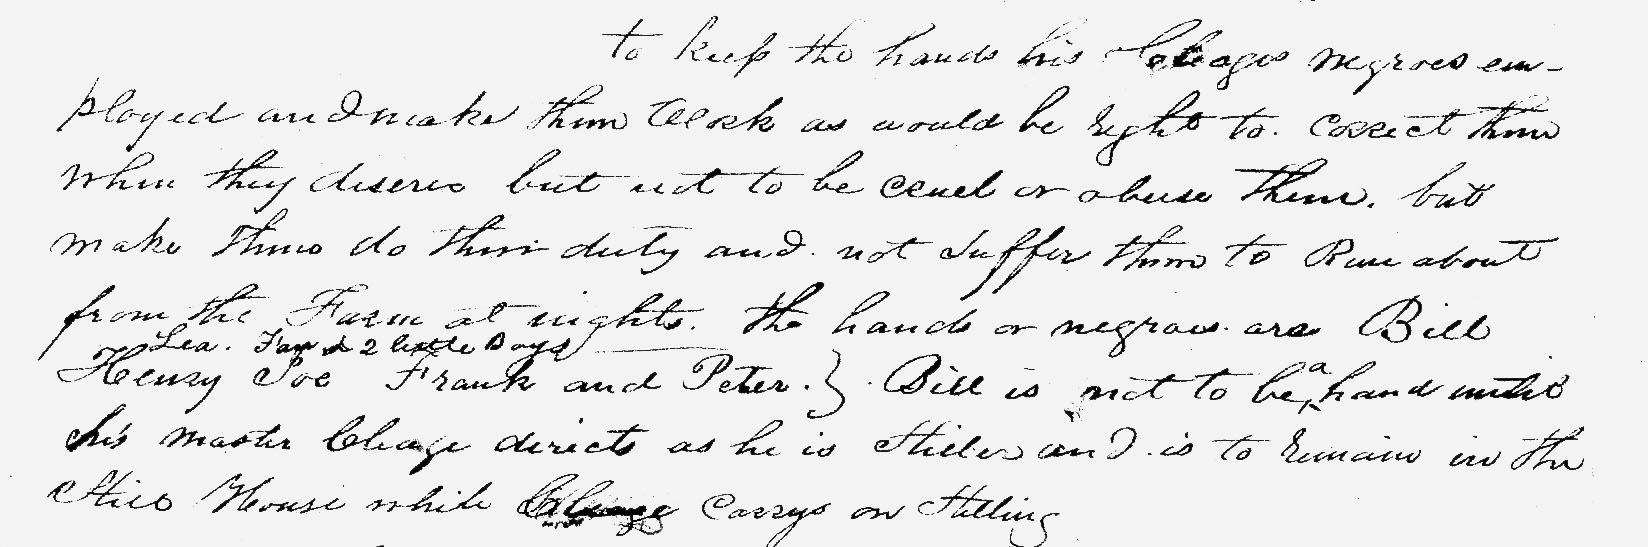 to keep the hands his Cleages negroes em-
ployed and make them Work as would be right to. correct them
when they deserve but not to be cruel or abuse them. but
make them do their duty and not suffer them to Run about
from the Farm at nights. the hands or negroes are Bill
Lea. Fan & 2 little Boys
Henry Joe Frank and Peter. } Bill is not to be a hand until
his master Cleage directs as he is Stiller and is to remain in the
Still House while Cleage Carrys on Stilling